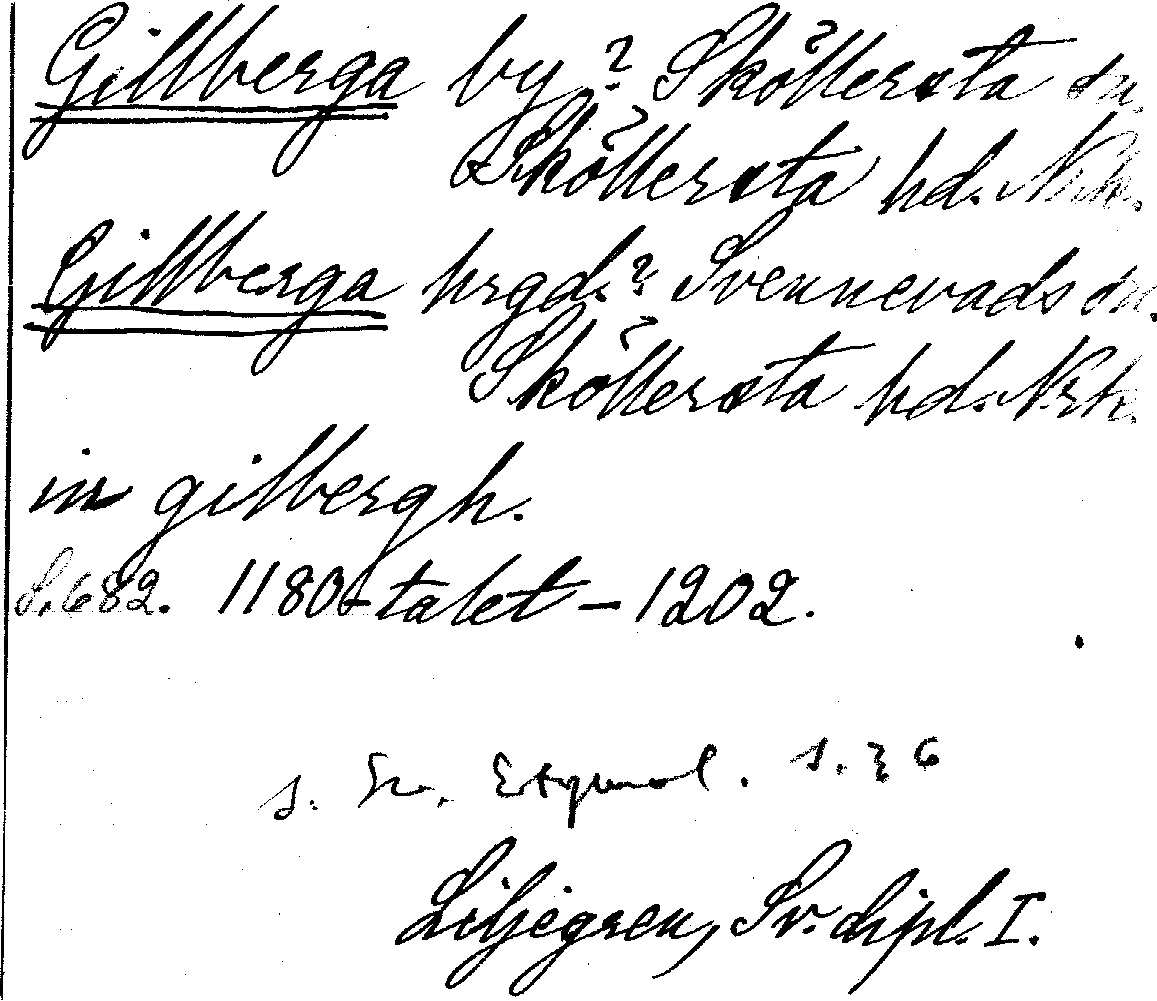 Gillberga by? Sköllersta sn.
Sköllersta hd. Nrk.
Gillberga hrgd.? Svennevads sn.
Sköllersta hd. Nrk.
in gilbergh.
S. 682. 1180-talet – 1202.
s. Etymol. s. 36
Liljegren, Sv. dipl. I.